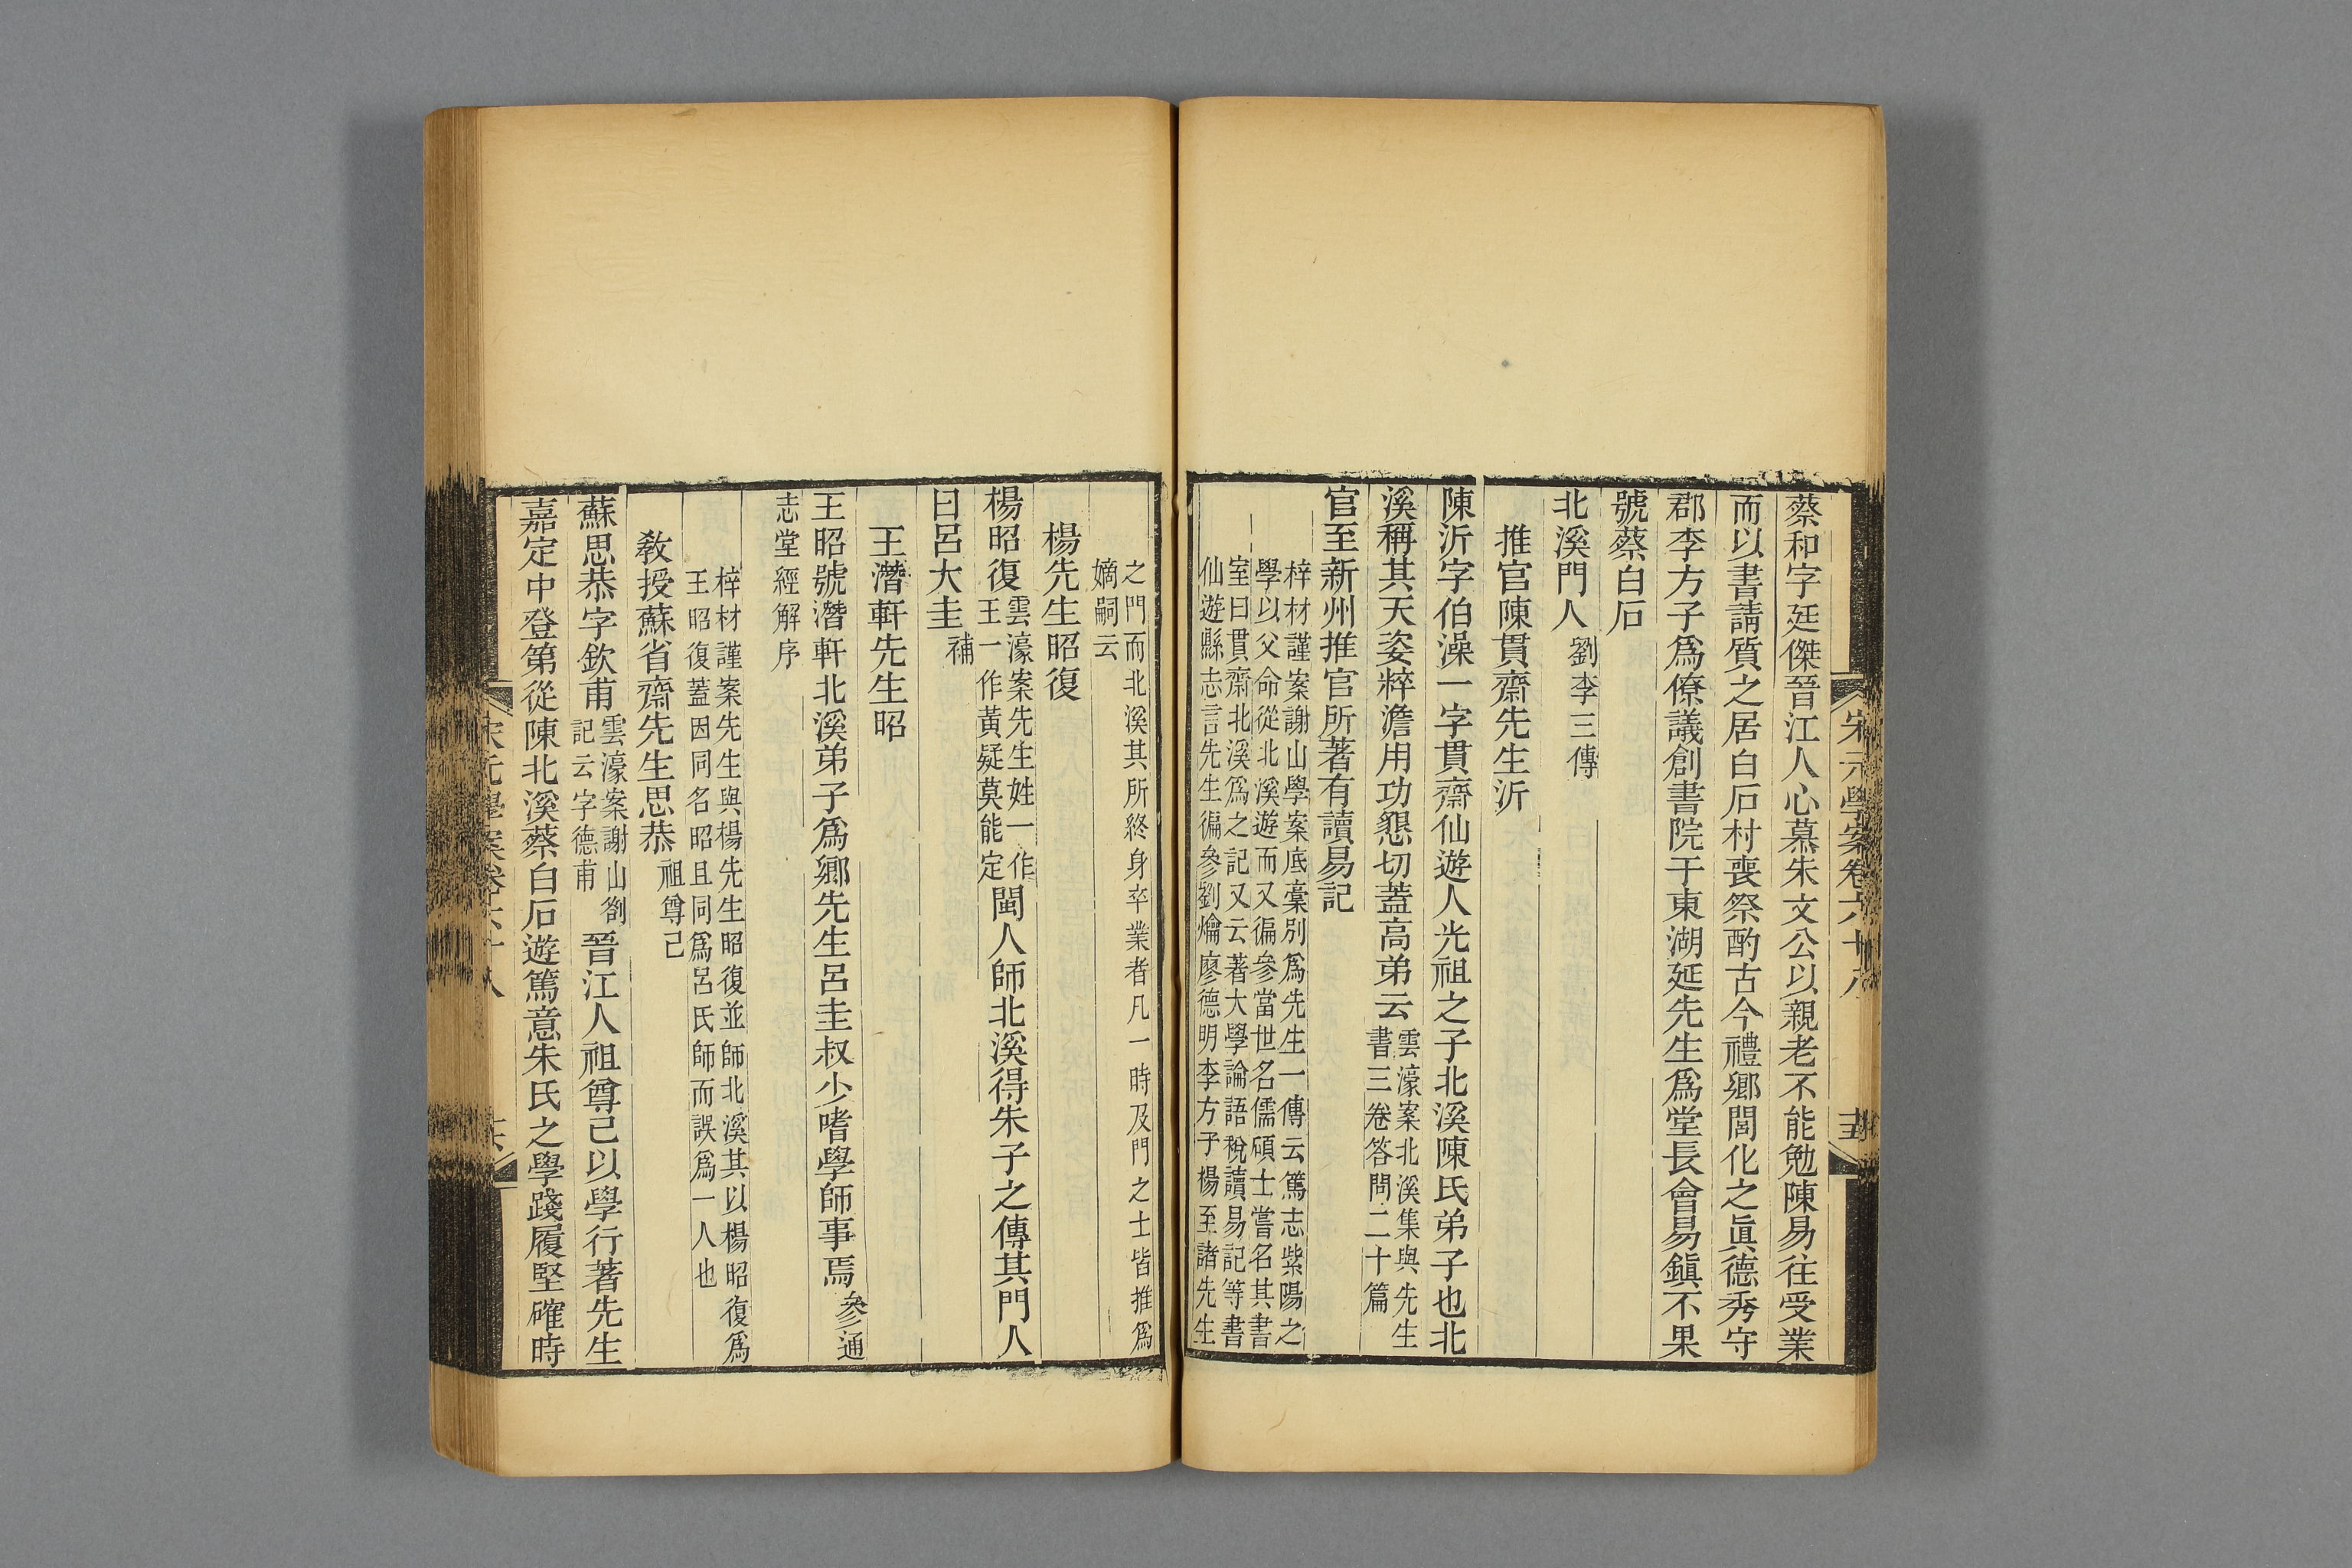 蔡和字廷傑晉江人心慕朱文公以親老不能勉陳易往受業
而以書請質之居白石村喪祭酌古今禮鄉閭化之眞德秀守
郡李方子爲僚議創書院于東湖延先生爲堂長會易鎭不果
號蔡白石
北溪門人劉李三傳
推官陳貫齋先生沂
陳沂字伯澡一字貫齋仙遊人光祖之子北溪陳氏弟子也北
溪稱其天姿粹澹用功懇切蓋高弟云雲濠案北溪集與先生
書三卷答問二十篇
官至新州推官所著有讀易記
梓材謹案謝山學案底稾別爲先生一傳云篤志紫陽之
學以父命從北溪遊而又徧參當世名儒碩士嘗名其書
室曰貫齋北溪爲之記又云著大學論語稅讀易記等書
仙遊縣志言先生徧參劉爚廖德明李方子楊至諸先生
之門而北溪其所終身卒業者凡一時及門之士皆推爲
嫡嗣云
楊先生昭復
楊昭復雲濠案先生姓一作
王一作黃疑莫能定閩人師北溪得朱子之傳其門人
曰呂大圭補
王潛軒先生昭
王昭號潛軒北溪弟子爲鄉先生呂圭叔少嗜學師事焉參通
志堂經解序
梓材謹案先生與楊先生昭復並師北溪其以楊昭復爲
王昭復蓋因同名昭且同爲呂氏師而誤爲一人也
敎授蘇省齋先生思恭祖尊己
蘇思恭字欽甫雲濠案謝山劄
記云字德甫晉江人祖尊己以學行著先生
嘉定中登第從陳北溪蔡白石遊篤意朱氏之學踐履堅確時
宋元學案卷六十八